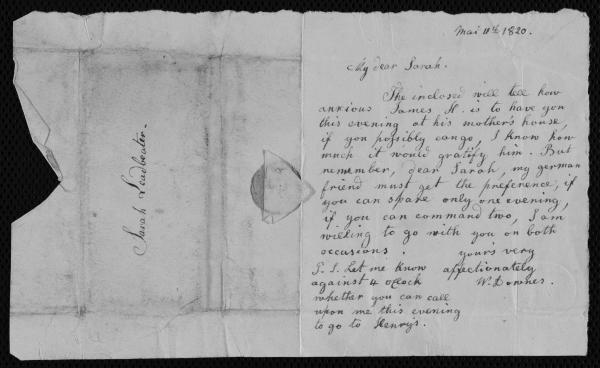 Mai 11th 1820.
My dear Sarah.
The inclosed will tell how
anxious James H. is to have you
this evening at his mother's house,
if you possibly can go, I know how
much it would gratify him. But
remember, dear Sarah, my german
friend must get the preference, if
you can spare only one evening,
if you can command two, I am
willing to go with you on both
occasions. your's very
affectionately
W. Downes.
P. S. Let me know
against 4 oClock
whether you can call
upon me this evening
to go to Henry's.
Sarah Leadbeater.